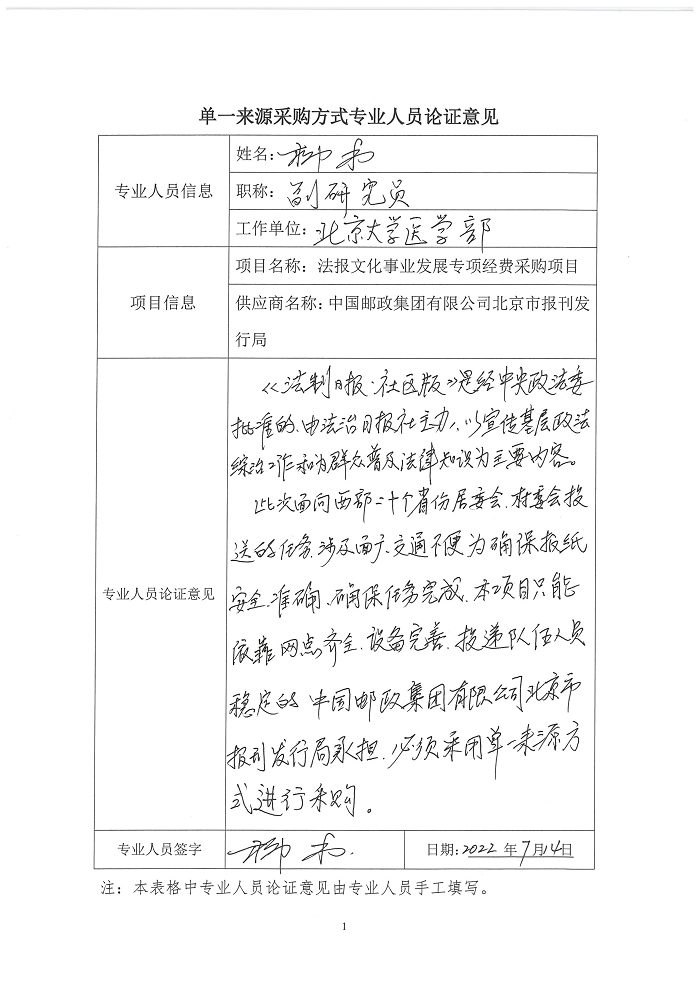 单一来源采购方式专业人员论证意见
专业人员信息
姓名：柳
职称：副研究员
工作单位：北京大学医学部
项目信息
项目名称：法报文化事业发展专项经费采购项目
供应商名称：中国邮政集团有限公司北京市报刊发
行局
专业人员论证意见
《法制日报·社区版》是经中央政法委
批准的、由法治日报社主办、以宣传基层政法
综治工作和为群众普及法律知识为主要内容。
此次面向西部二十个省份居委会、村委会投
送的任务，涉及面广、交通不便，为确保报纸
安全、准确、确保任务完成，本项目只能
依靠网点齐全、设备完善、投递队伍人员
稳定的中国邮政集团有限公司北京市
报刊发行局承担，必须采用单一来源方
式进行采购。
专业人员签字
柳
日期：2022 年 7月14日
注：本表格中专业人员论证意见由专业人员手工填写。
1